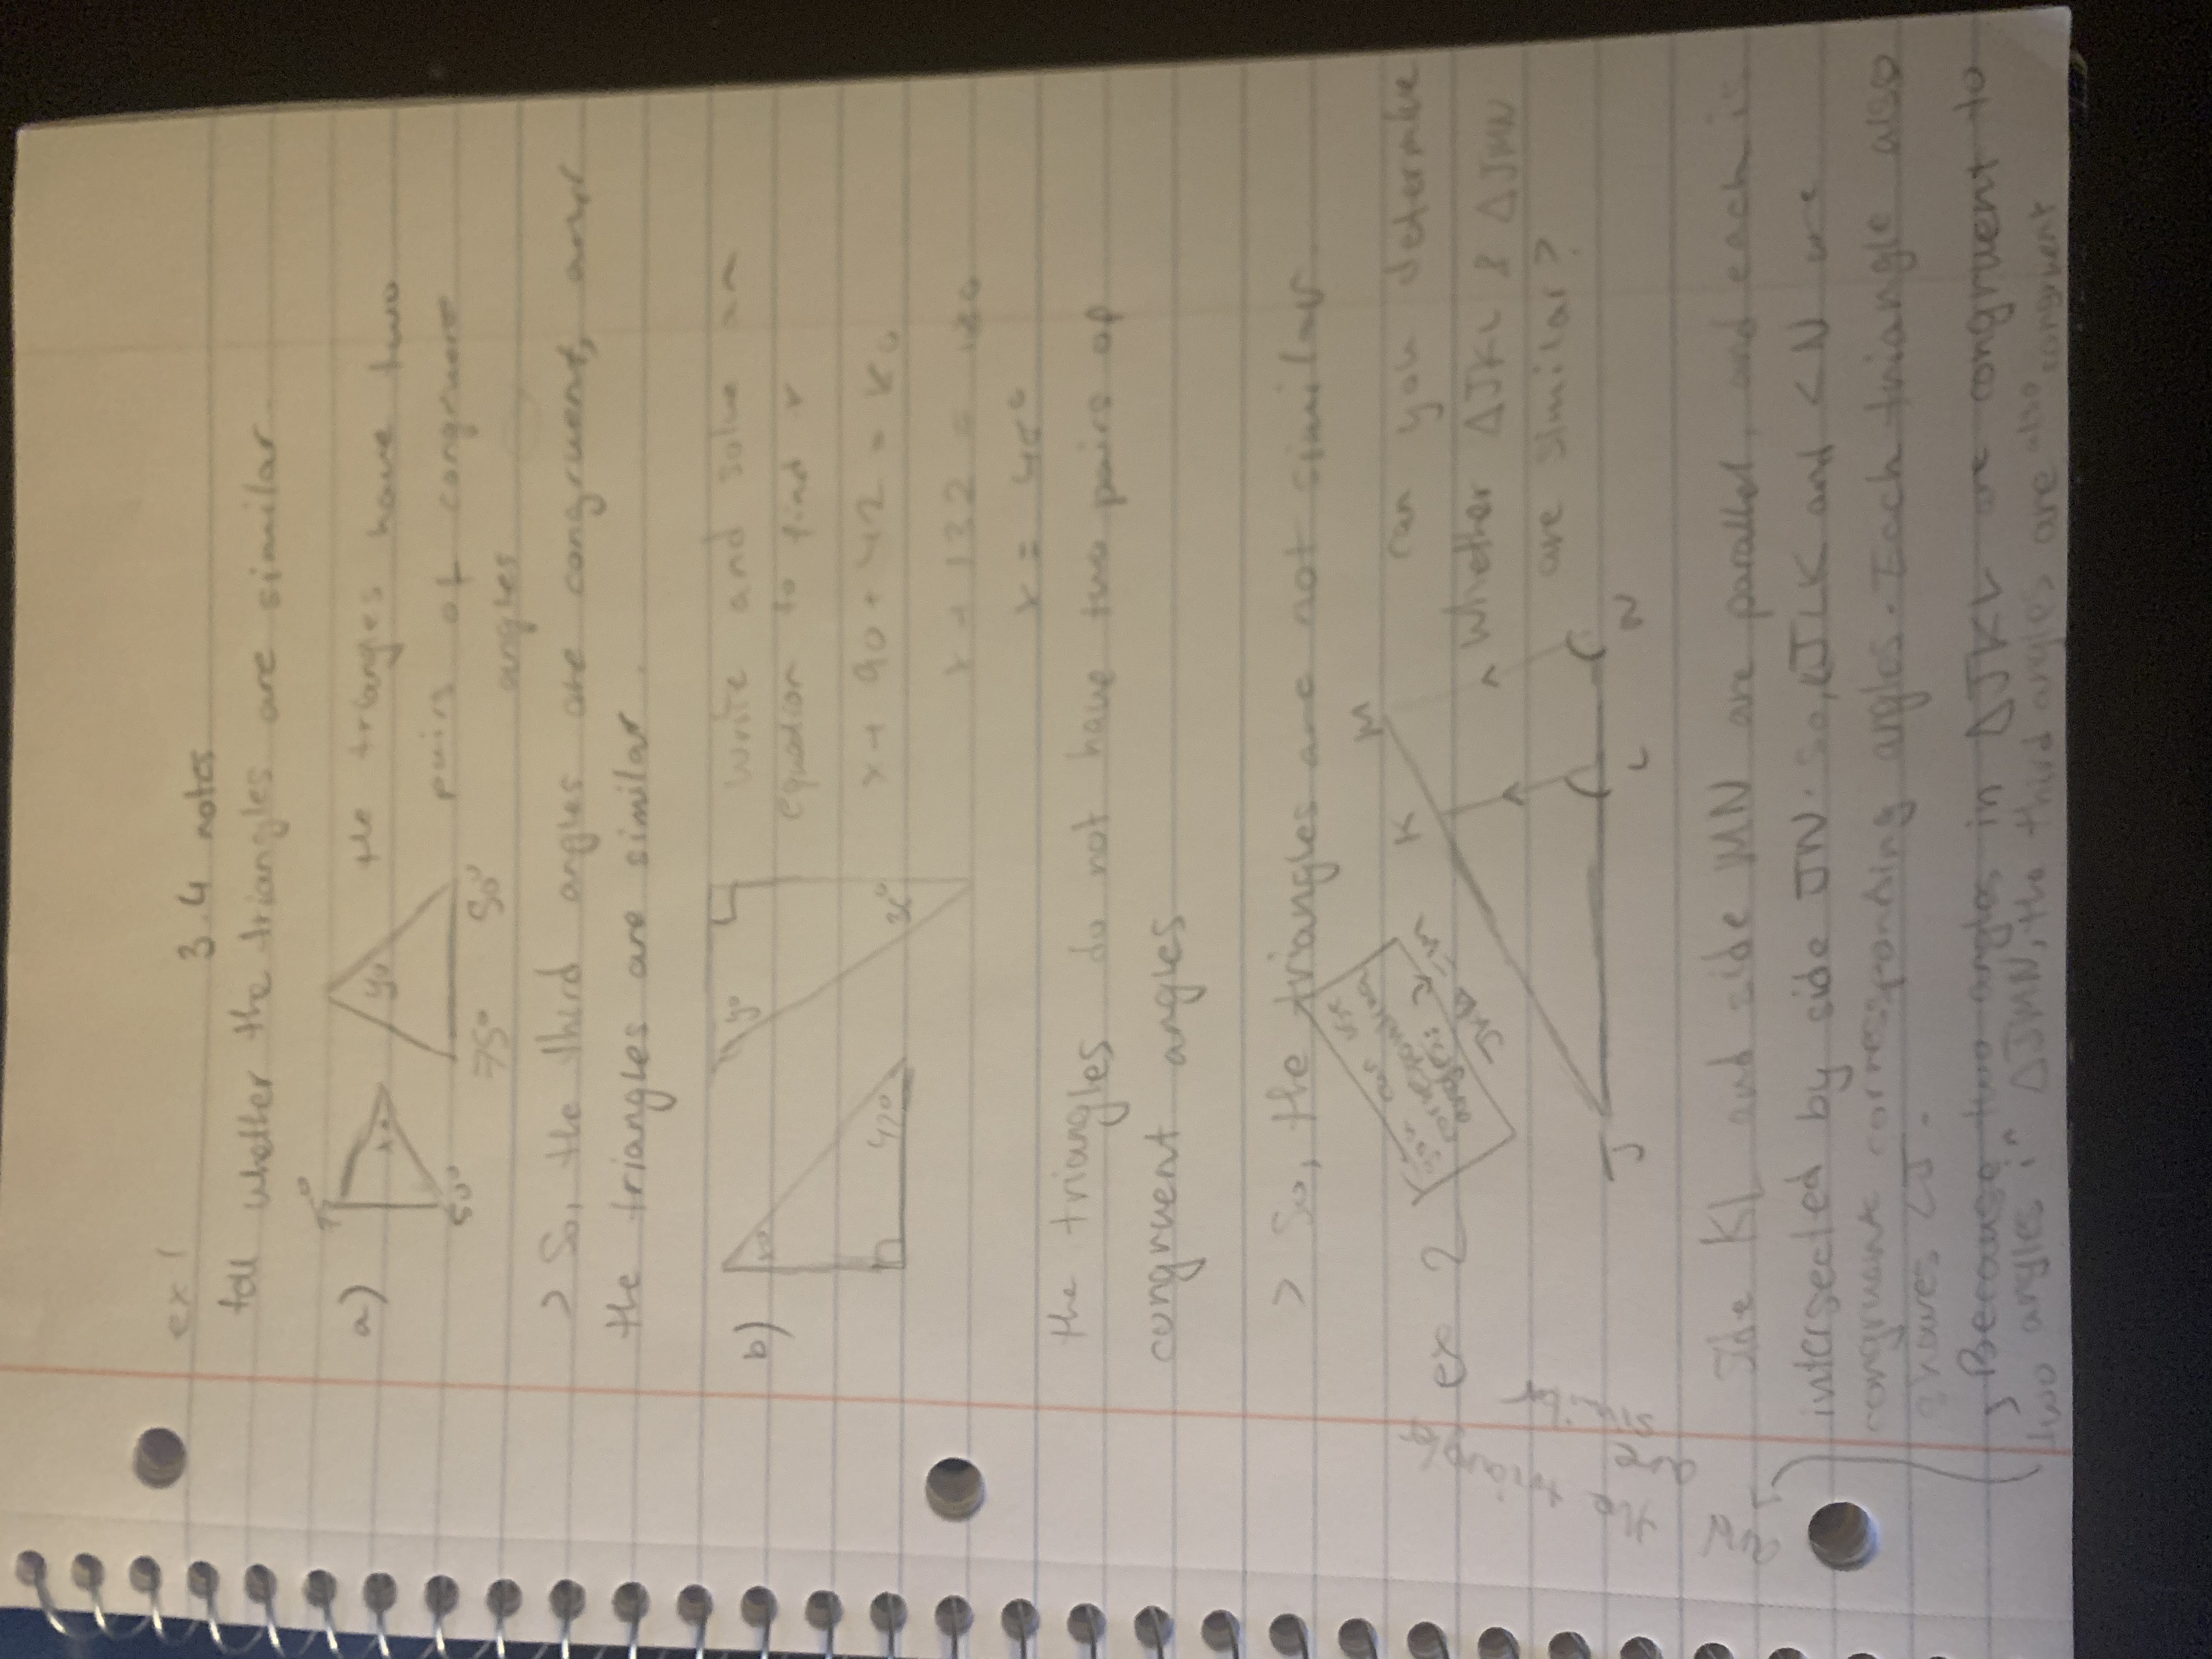 ex 1
3.4 notes
tell whether the triangles are similar
a)
x°
50°
y°
75°
50°
the triangles have two
pairs of congruent
angles
> So, the third angles are congruent, and
the triangles are similar.
b)
x°
42°
y°
write and solve an
equation to find x
x + 90 + 42 = 180
x + 132 = 180
x =
the triangles do not have two pairs of
congruent angles
> So, the triangles are not similar.
ex 2
you can use
corresponding
angles:
K
M
J
L
N
can you determine
whether △JKL & △JMN
are similar?
Side KL and side MN are parallel, and each is
intersected by side JN. So, ∠JLK and ∠N are
congruent corresponding angles. Each triangle also
shares ∠J.
> Because two angles in △JKL are congruent to
two angles in △JMN, the third angles are also congruent
and the triangles
are
similar